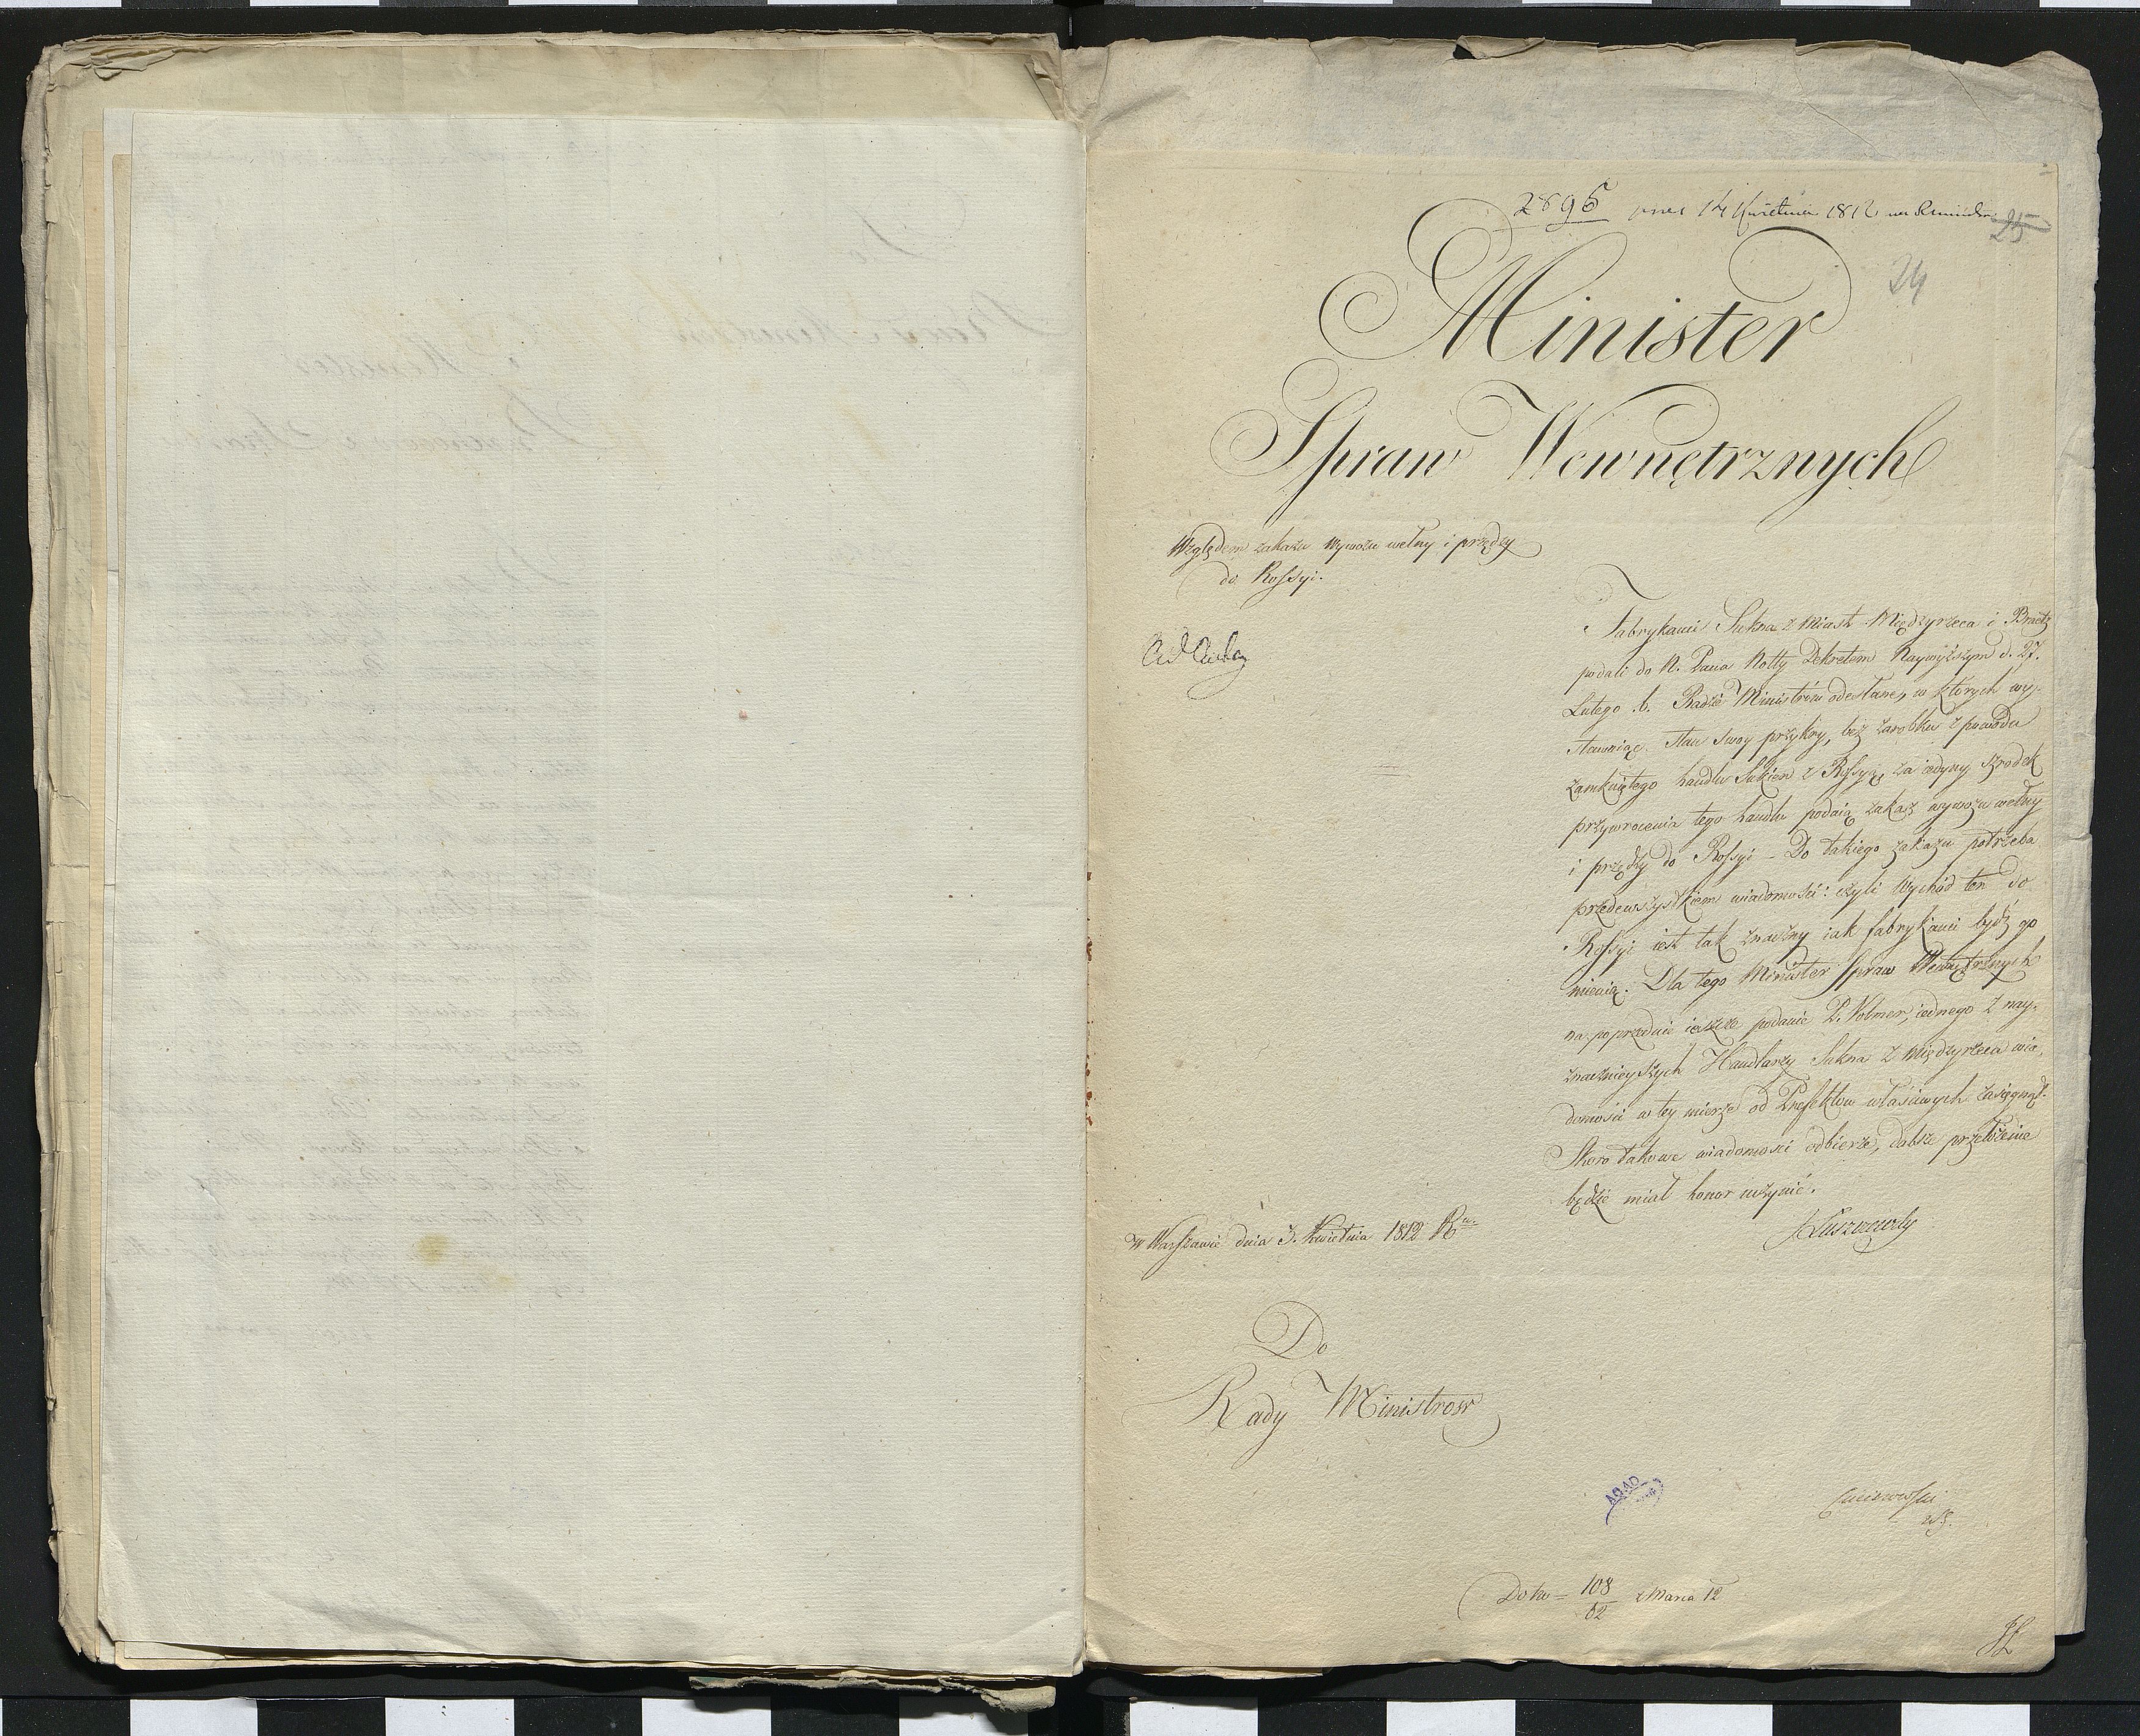 2895 14 Kwietnia 1812
25
24
Minister
Spraw Wewnętrznych
Względem zakazu wywozu wełny i przędzy
do Rossyi.
Fabrykanci Sukna z Miast Międzyrzeca i
podali do N. Pana Notty Dekretem Naywyższym d. 27.
Lutego b. Radzie Ministrów odesłane, w których wy-
stawuiąc stan swoy przykry, bez zarobku z powodu
zamkniętego handlu Sukien z Rossyą, za iedyny szrodek
przywrocenia tego handlu podaią zakaz wywozu wełny
i przędzy do Rossyi - Do takiego zakazu potrzeba
przedewszystkiem wiadomości: czyli wychód ten do
Rossyi iest tak znaczny iak fabrykanci bydź go
mienią. Dla tego Minister Spraw Wewnętrznych
na poprzednie ieszcze podanie P. Volmer, iednego z nay-
znacznieyszych Handlarzy Sukna z Międzyrzeca wia-
domości w tey mierze od Prefektow właściwych zasięgnął.
Skoro takowe wiadomości odbierze, dalsze przełożenie
będzie miał honor uczynić.
JŁuszczewsky
w Warszawie dnia 3. Kwietnia 1812 R.
Do
Rady Ministrow
AGAD
108
62
z Marca 12